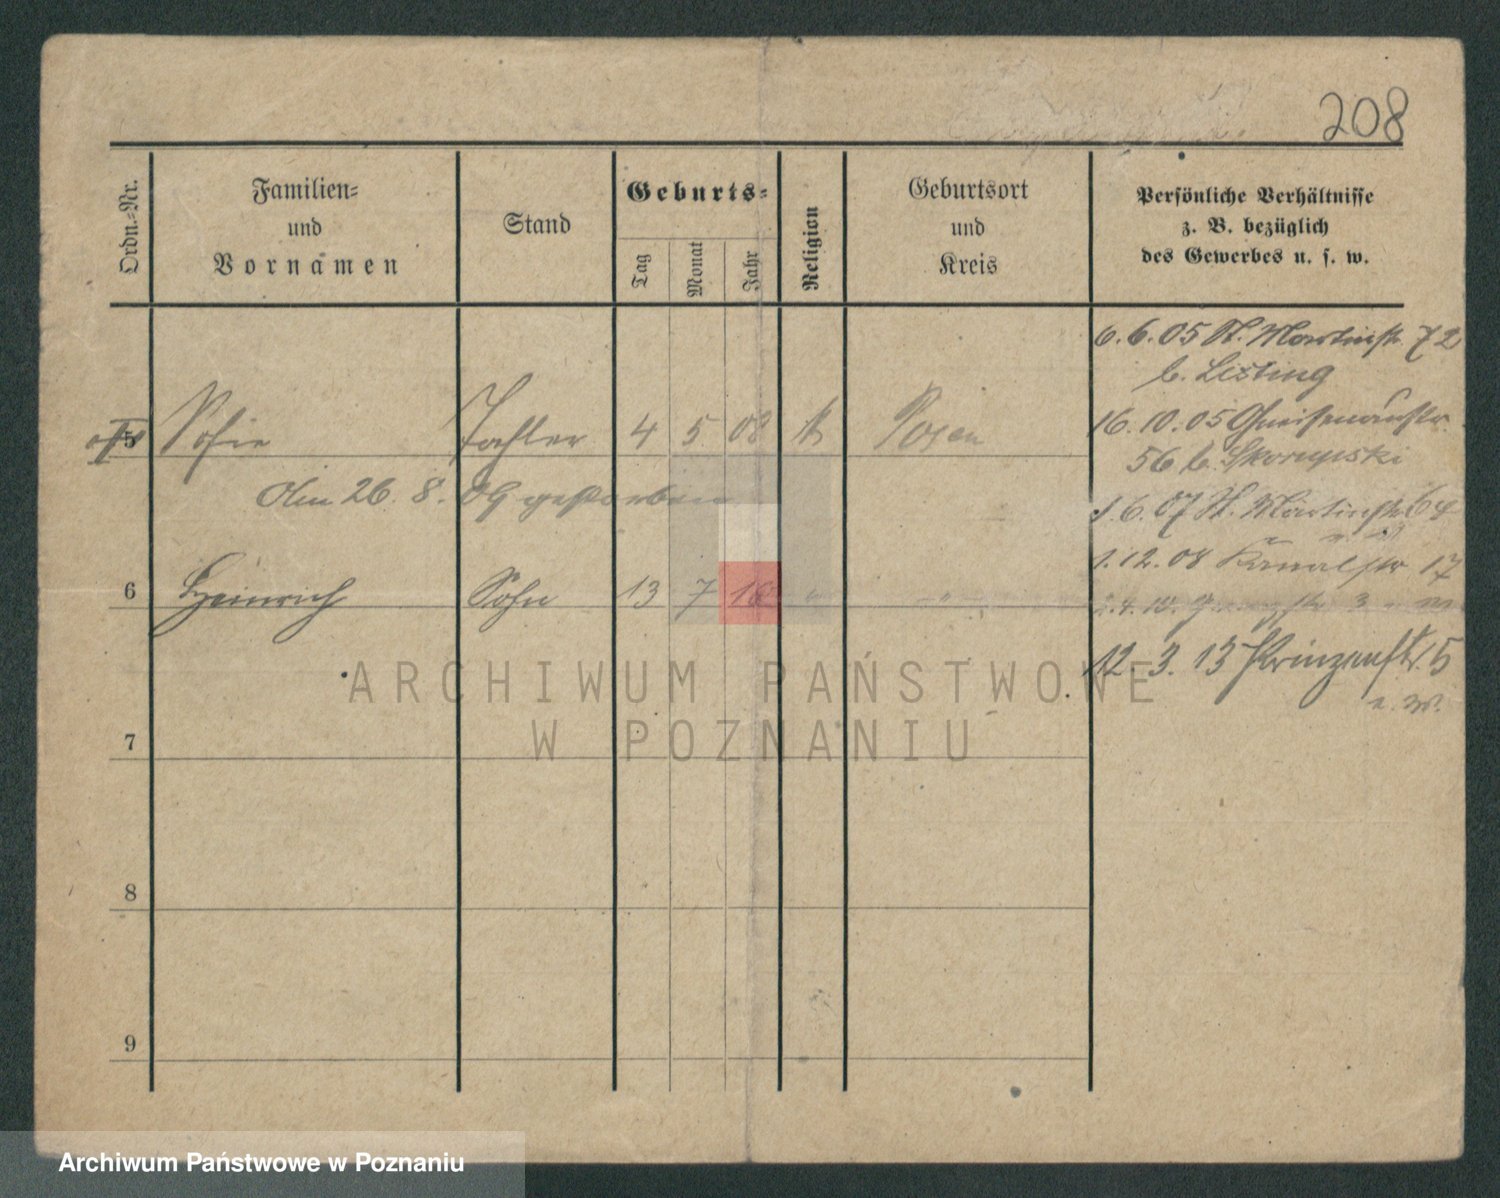 208
Ordn.-Nr.
Familien-
und
Vornamen
Stand
Geburts-
Tag
Monat
Jahr
Religion
Geburtsort
und
Kreis
Persönliche Verhältnisse
z. B. bezüglich
des Gewerbes u. s. w.
6.6.05 St. Martinstr. 72
b. Listing
5 Sofie Tochter 4 5 08 k Posen
16.10.05 Gneisenaustr.
56 b. Skorupski
Am 26. 8. 09 gestorben
1.6.07 St. Martinstr 64
1.12.08 Kanalstr 17
6 Heinrich Sohn 13 7 " "
12.3.13 Prinzenstr. 5
7
8
9
ARCHIWUM PAŃSTWOWE
W POZNANIU
Archiwum Państwowe w Poznaniu